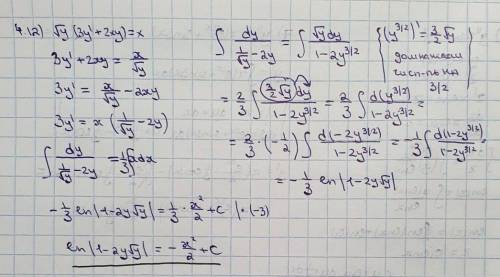 4.12) √y (3y' + 2xy) = x
3y' + 2xy = x/√y
3y' = x/√y - 2xy
3y' = x (1/√y - 2y)
∫ dy/(1/√y - 2y) = 1/3 ∫ xdx
-1/3 ln|1-2y√y| = 1/3 · x²/2 + C |·(-3)
ln|1-2y√y| = -x²/2 + C
∫ dy/(1/√y - 2y) = ∫ √y dy/(1-2y^3/2)
{(y^3/2)' = 3/2 √y
домножаем
числ-ль на
3/2}
= 2/3 ∫ (3/2 √y dy)/(1-2y^3/2) = 2/3 ∫ d(y^3/2)/(1-2y^3/2) =
= 2/3 · (-1/2) ∫ d(-2y^3/2)/(1-2y^3/2) = -1/3 ∫ d(1-2y^3/2)/(1-2y^3/2) =
= -1/3 ln|1-2y√y|